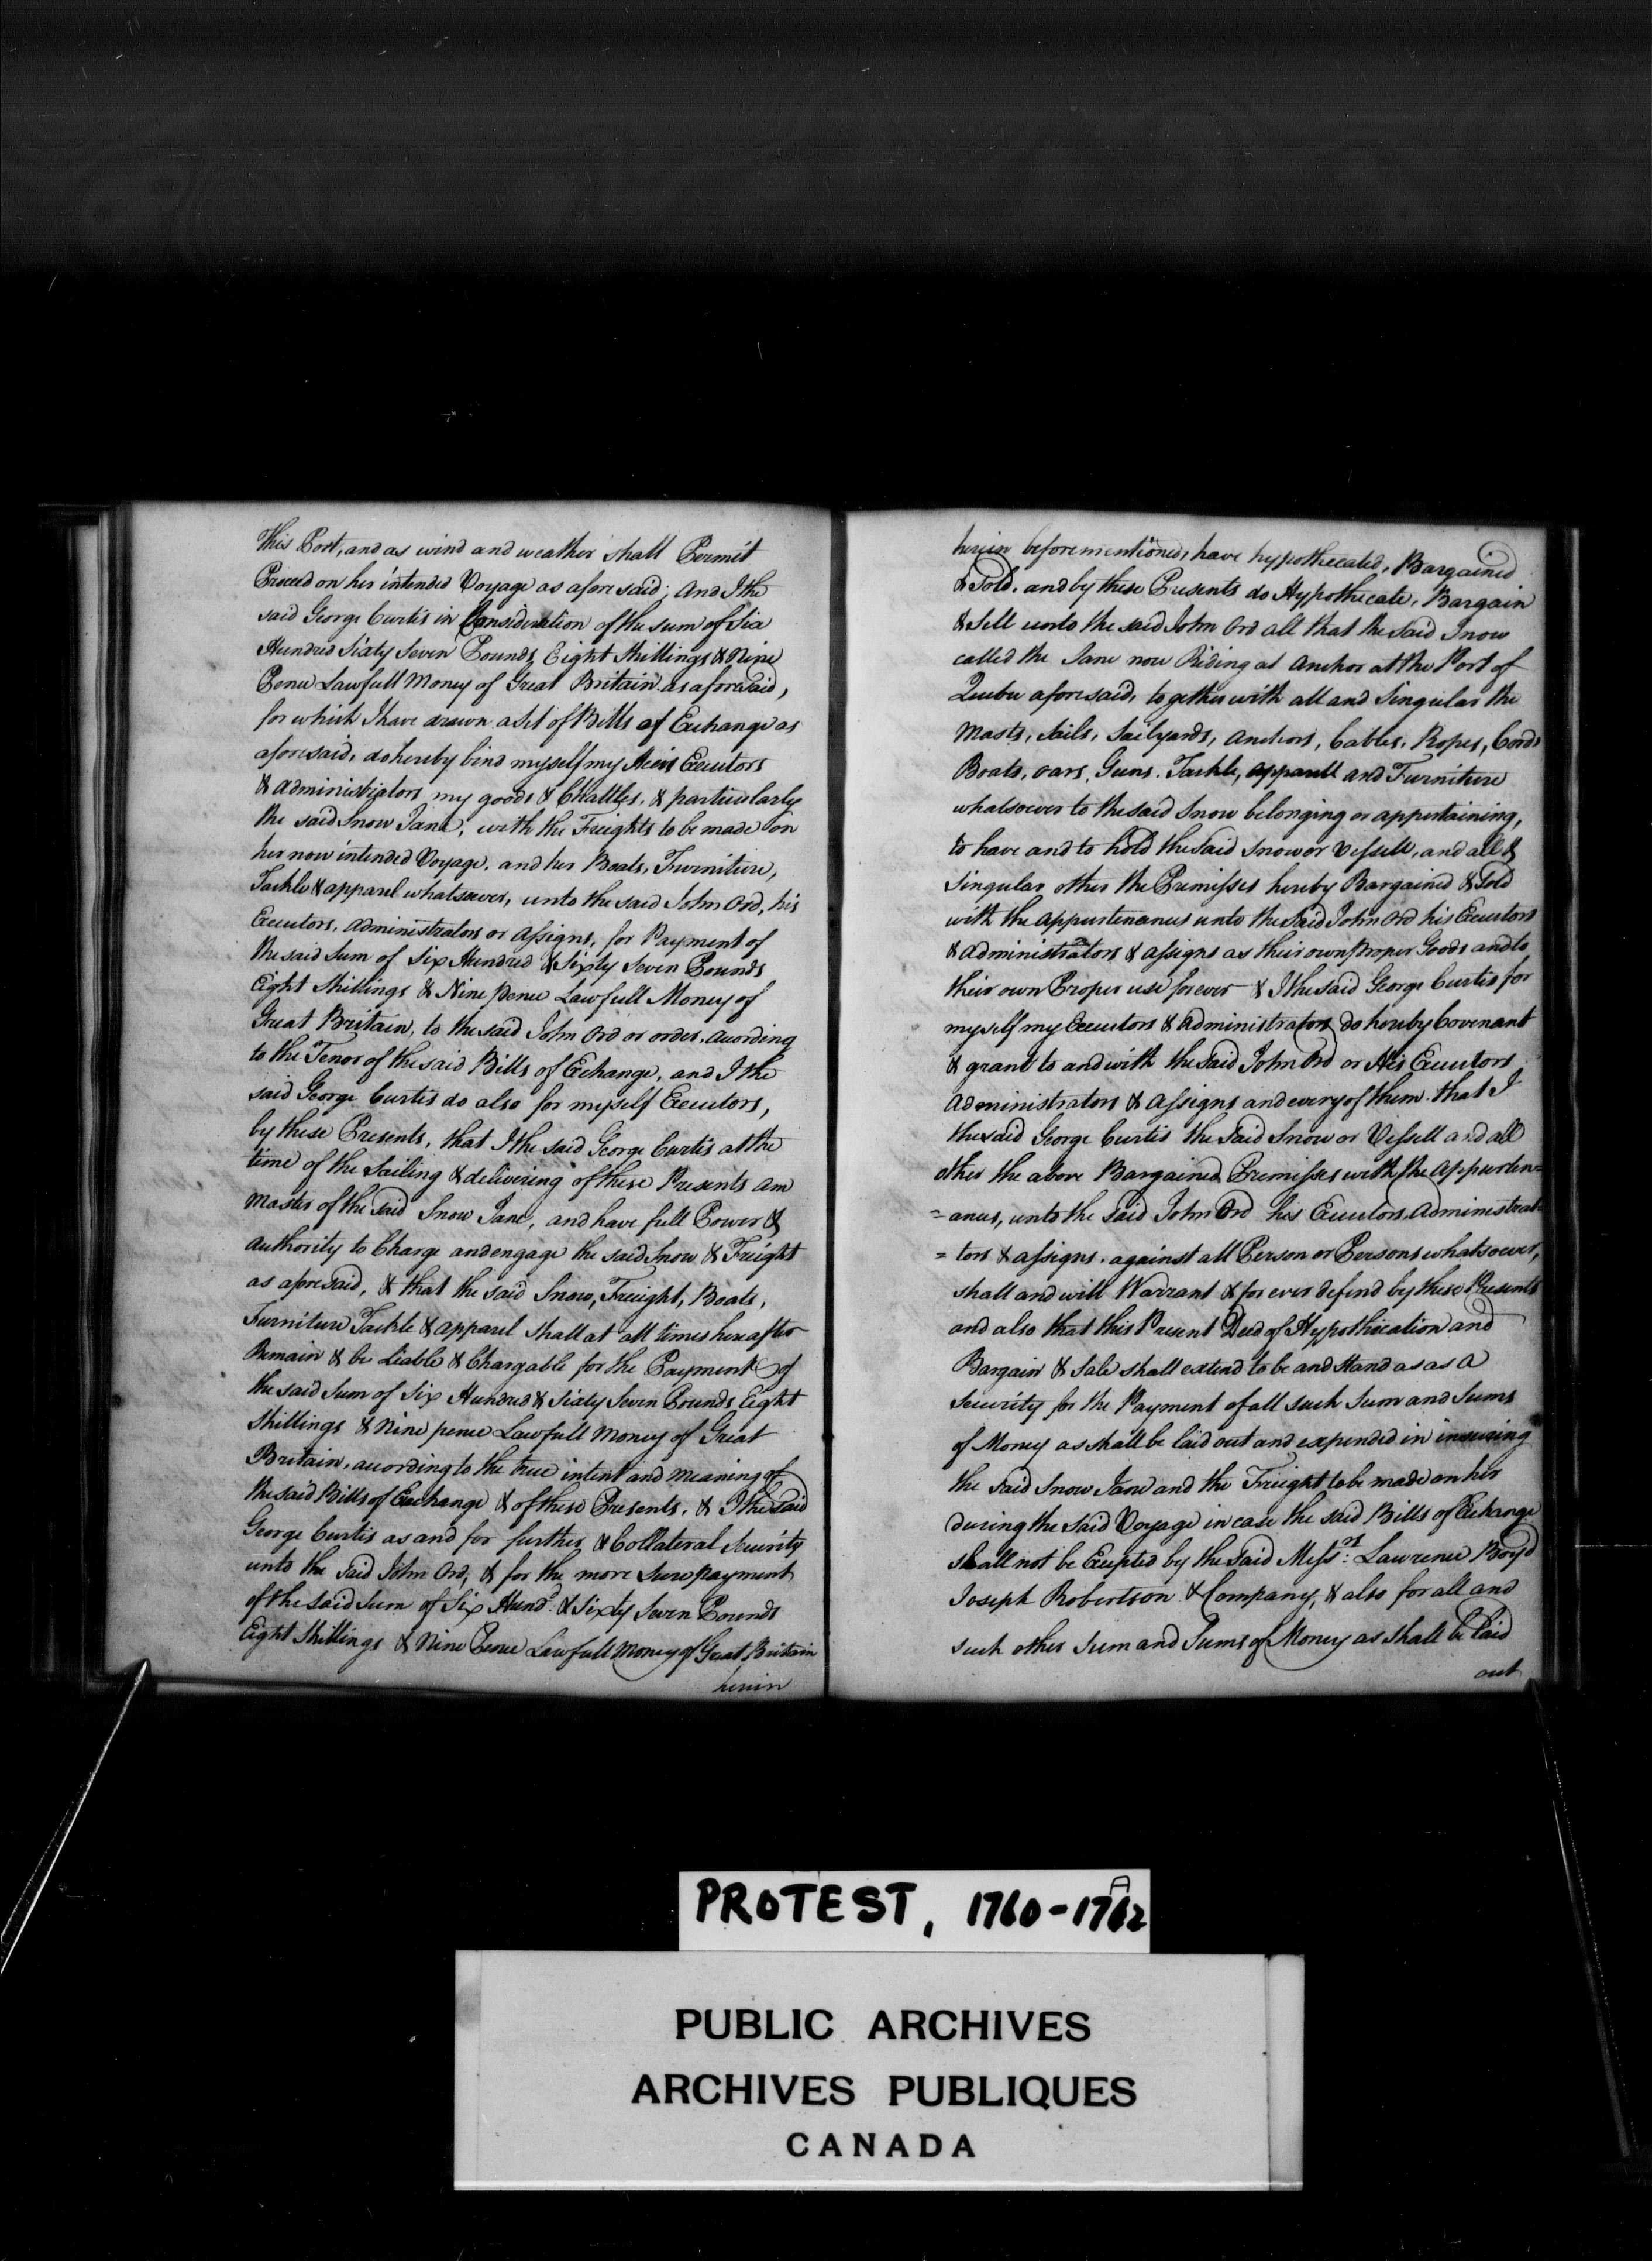 This Port, and as wind and weather shall Permit
Proceed on her intended Voyage as aforesaid; And I the
said George Curtis in Consideration of the sum of Six
Hundred Sixty Seven Pounds Eight Shillings & Nine
Pence Lawfull Money of Great Britain as aforesaid,
for which I have drawn a Set of Bills of Exchange as
aforesaid, do hereby bind myself my Heirs Executors
& Administrators my goods & Chattles, & particularly
the said Snow Jane, with the Freights to be made on
her now intended Voyage, and her Boats, Furniture,
Tackle & apparel whatsoever, unto the said John Ord, his
Executors, Administrators or Assigns, for Payment of
the said Sum of Six Hundred & Sixty Seven Pounds
Eight Shillings & Nine pence Lawfull Money of
Great Britain, to the said John Ord or order, according
to the Tenor of the said Bills of Exchange, and I the
said George Curtis do also for myself Executors,
by these Presents, that I the said George Curtis at the
time of the Sailing & delivering of these Presents am
Master of the said Snow Jane, and have full Power &
Authority to Charge and engage the said Snow & Freight
as aforesaid, & that the said Snow, Freight, Boats,
Furniture Tackle & Apparel Shall at all times hereafter
Remain & be Liable & Chargable for the Payment of
the said Sum of Six Hundred & Sixty Seven Pounds Eight
Shillings & Nine pence Lawfull Money of Great
Britain, according to the true intent and meaning of
the said Bills of Exchange & of these Presents, & I the said
George Curtis as and for further & Collateral Security
unto the Said John Ord, & for the more Sure payment
of the said Sum of Six Hund:d & Sixty Seven Pounds
Eight Shillings & Nine Pence Lawfull Money of Great Britain
herein
herein beforementioned, have hypothecated, Bargained
& Sold, and by these Presents do Hypothecate, Bargain
& Sell unto the said John Ord all that the said Snow
called the Jane now Riding at Anchor at the Port of
Quebec aforesaid, together with all and Singular the
Masts, Sails, Sailyards, Anchors, Cables, Ropes, Cords
Boats, oars, Guns, Tackle, apparell and Furniture
whatsoever to the said Snow belonging or appertaining,
to have and to hold the Said Snow or Vessell, and all &
Singular other the Premisses hereby Bargained & Sold
with the Appurtenances unto the Said John Ord his Executors
& Administrators & Assigns as their own Proper Goods and to
their own Proper use forever & I the said George Curtis for
myself my Executors & Administrators do hereby Covenant
& grant to and with the Said John Ord or His Executors
Administrators & Assigns and every of them that I
the said George Curtis the Said Snow or Vessell and all
other the above Bargained Premisses with the Appurten=
=ances, unto the Said John Ord his Executors Administrat=
=tors & assigns, against all Person or Persons whatsoever,
shall and will Warrant & for ever defend by these Presents
and also that this Present Deed of Hypothecation and
Bargain & Sale shall extend to be and Stand as as a
Security for the Payment of all such Sum and Sums
of Money as shall be laid out and expended in insuring
the Said Snow Jane and the Freight to be made on her
during the Said Voyage in case the said Bills of Exchange
Shall not be Excepted by the Said Mess:rs Lawrence Boyd
Joseph Robertson & Company, & also for all and
such other Sum and Sums of Money as shall be laid
out
PROTEST, 1760-1762
PUBLIC ARCHIVES
ARCHIVES PUBLIQUES
CANADA